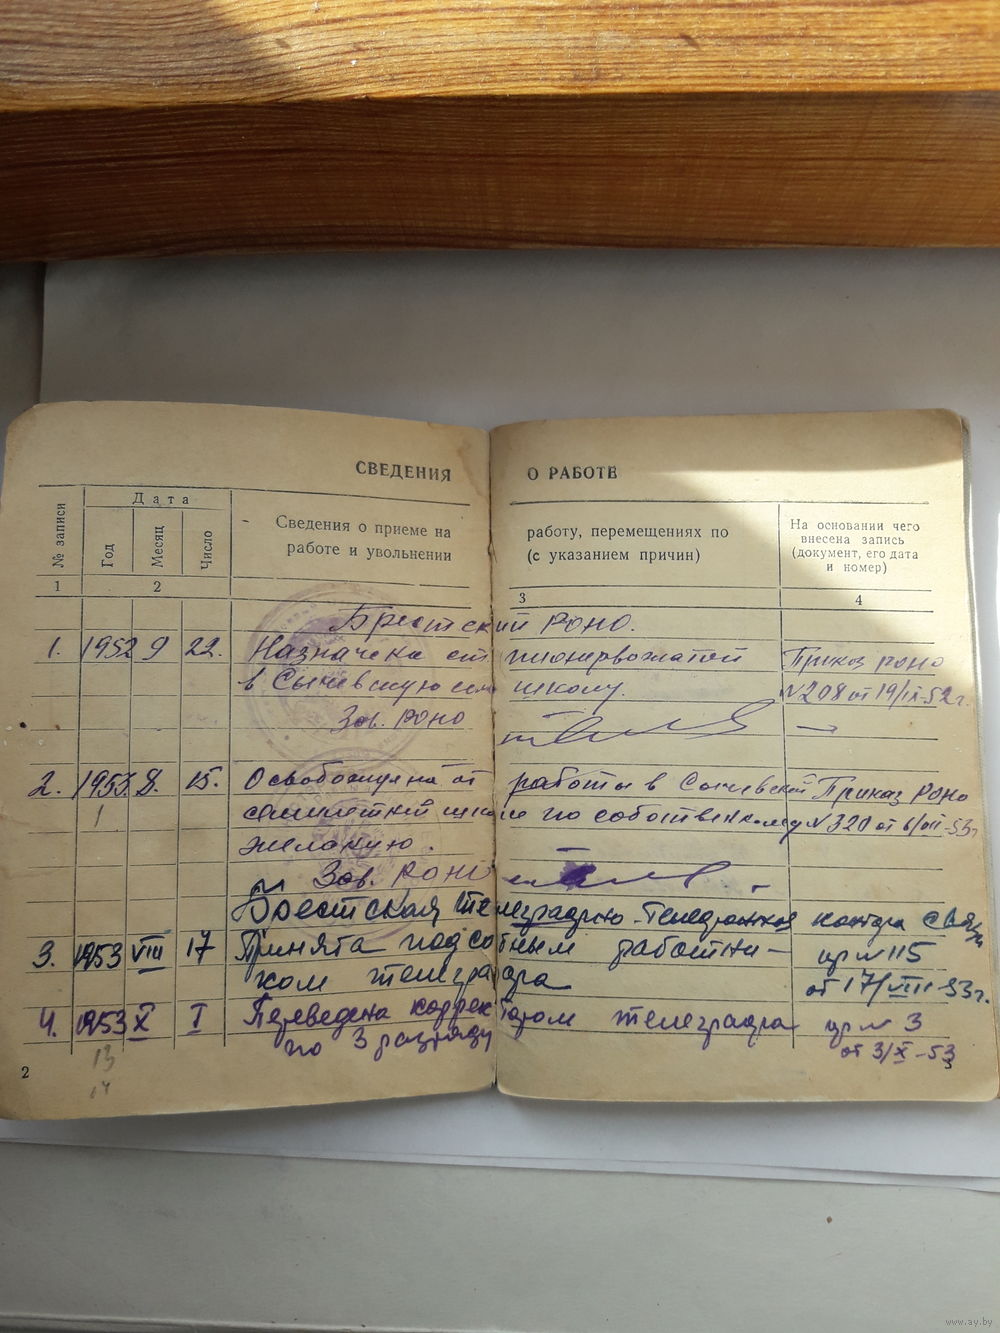 СВЕДЕНИЯ О РАБОТЕ
№ записи
Дата
Год
Месяц
Число
Сведения о приеме на работу, перемещениях по
работе и увольнении (с указанием причин)
На основании чего
внесена запись
(документ, его дата
и номер)
1 2 3 4
Брестский РОНО.
1. 1952 9 22. Назначена ст. пионервожатой Приказ роно
в Сычевскую сем. школу. № 208 от 19/IX-52 г.
Зав. РОНО
2. 1953 8. 15. Освобождена от работы в Сычевской Приказ РОНО
семилетней школе по собственному № 320 от 6/VIII-53 г
желанию.
Зав. РОНО
Брестская телеграфно-телефонная контора связи
3. 1953 VIII 17 Принята подсобным работни- пр № 115
ком телеграфа от 17/VIII-53 г.
4. 1953 X I Переведена корректором телеграфа пр № 3
по 3 разряду от 3/X-53
13
14
2
www.ay.by